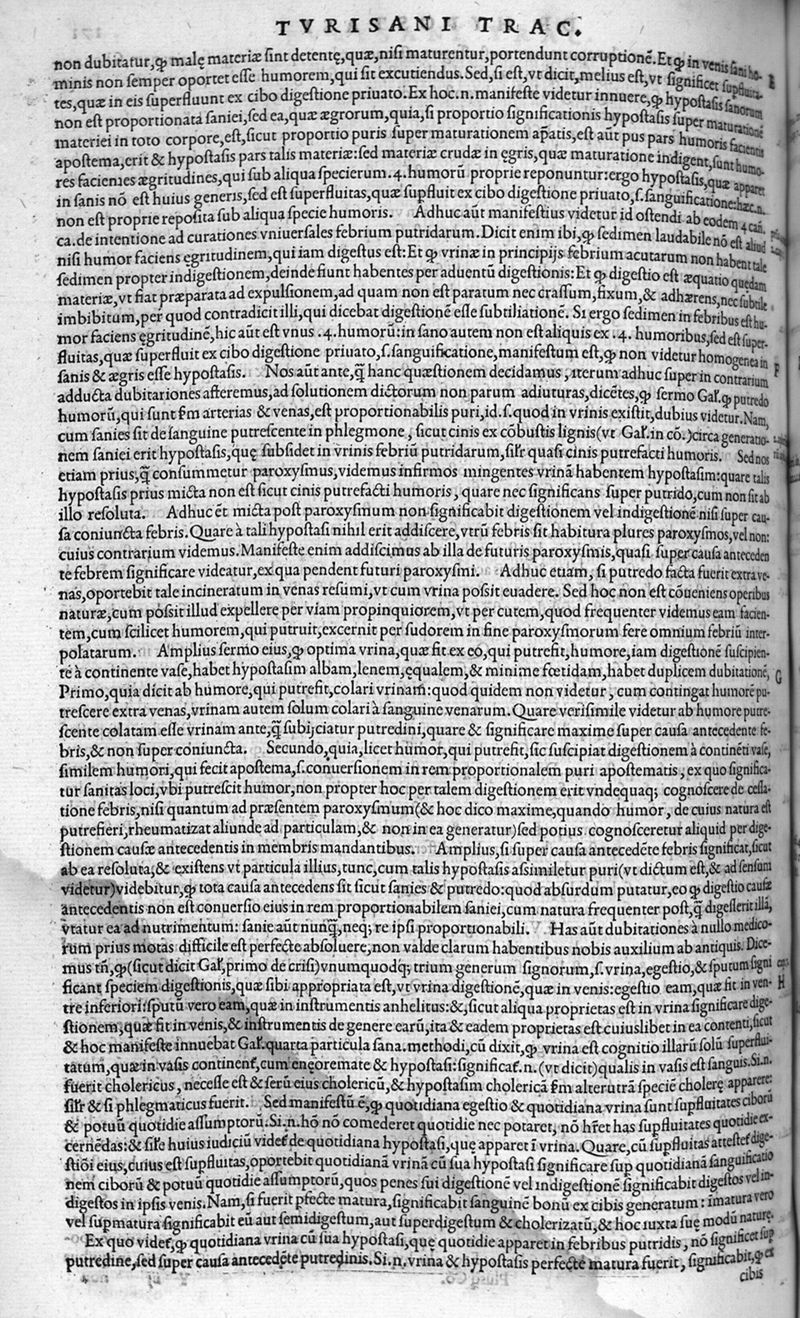 TVRISANI TRAC.
non dubitatur, ꝙ malę materiæ sint detentę, quæ, nisi maturentur, portendunt corruptionē. Et ꝙ in venis sani ho-
minis non semper oportet esse humorem, qui sit excutiendus. Sed, si est, vt dicit, melius est, vt significet supfluita-
tes, quæ in eis superfluunt ex cibo digestione priuato. Ex hoc .n. manifeste videtur innuere, ꝙ hypostasis sanorum
non est proportionata saniei, sed ea, quæ ægrorum, quia, si proportio significationis hypostasis super maturationē
materiei in toto corpore, est, sicut proportio puris super maturationem apatis, est aūt pus pars humoris facientis
apostema, erit & hypostasis pars talis materiæ: sed materiæ crudæ in ęgris, quæ maturatione indigent, sunt humo-
res facientes ægritudines, qui sub aliqua specierum .4. humorū proprie reponuntur: ergo hypostasis, quæ apparet
in sanis nō est huius generis, sed est superfluitas, quæ supfluit ex cibo digestione priuato, s. sanguificatione: hæc .n.
non est proprie reposita sub aliqua specie humoris. Adhuc aūt manifestius videtur id ostendi ab eodem 4 cań.
ca. de intentione ad curationes vniuersales febrium putridarum. Dicit enim ibi, ꝙ sedimen laudabile nō est aliud
nisi humor faciens egritudinem, qui iam digestus est: Et ꝙ vrinæ in principijs febrium acutarum non habent tale
sedimen propter indigestionem, deinde fiunt habentes per aduentū digestionis: Et ꝙ digestio est æquatio quedam
materiæ, vt fiat præparata ad expulsionem, ad quam non est paratum nec crassum, fixum, & adhærens, nec subtile
imbibitum, per quod contradicit illi, qui dicebat digestionē esse subtiliationē. Si ergo sedimen in febribus est hu-
mor faciens ęgritudinē, hic aūt est vnus .4. humorū: in sano autem non est aliquis ex .4. humoribus, sed est super-
fluitas, quæ superfluit ex cibo digestione priuato, s. sanguificatione, manifestum est, ꝙ non videtur homogenea in
sanis & ægris esse hypostasis. Nos aūt ante, q̄ hanc quæstionem decidamus, iterum adhuc super in contrarium
adducta dubitationes afferemus, ad solutionem dictorum non parum adiuturas, dicētes, ꝙ sermo Gal. ꝙ putredo
humorū, qui sunt s̄m arterias & venas, est proportionabilis puri, id. s. quod in vrinis existit, dubius videtur. Nam,
cum sanies sit de sanguine putrescente in phlegmone, sicut cinis ex cōbustis lignis (vt Gal. in cō.) circa generatio-
nem saniei erit hypostasis, quę subsidet in vrinis febriū putridarum, silr quasi cinis putrefacti humoris. Sed nos
etiam prius, q̄ consummetur paroxysmus, videmus infirmos mingentes vrinā habentem hypostasim: quare talis
hypostasis prius micta non est sicut cinis putrefacti humoris, quare nec significans super putrido, cum non sit ab
illo resoluta. Adhuc ēt micta post paroxysmum non significabit digestionem vel indigestionē nisi super cau-
sa coniuncta febris. Quare à tali hypostasi nihil erit addiscere, vtrū febris sit habitura plures paroxysmos, vel non:
cuius contrarium videmus. Manifeste enim addiscimus ab illa de futuris paroxysmis, quasi super causa anteceden
te febrem significare videatur, ex qua pendent futuri paroxysmi. Adhuc etiam, si putredo facta fuerit extra ve-
nas, oportebit tale incineratum in venas resumi, vt cum vrina possit euadere. Sed hoc non est cōueniens operibus
naturæ, cum possit illud expellere per viam propinquiorem, vt per cutem, quod frequenter videmus eam facien-
tem, cum scilicet humorem, qui putruit, excernit per sudorem in fine paroxysmorum fere omnium febriū inter-
polatarum. Amplius sermo eius, ꝙ optima vrina, quæ fit ex eo, qui putrefit, humore, iam digestionē suscipien-
te à continente vase, habet hypostasim albam, lenem, ęqualem, & minime fœtidam, habet duplicem dubitationē,
Primo, quia dicit ab humore, qui putrefit, colari vrinam: quod quidem non videtur, cum contingat humorē pu-
trescere extra venas, vrinam autem solum colari à sanguine venarum. Quare verisimile videtur ab humore putre-
scente colatam esse vrinam ante, q̄ subijciatur putredini, quare & significare maxime super causa antecedente fe-
bris, & non super coniuncta. Secundo, quia, licet humor, qui putrefit, sic suscipiat digestionem à contināti vase,
similem humori, qui fecit apostema, s. conuersionem in rem proportionalem puri apostematis, ex quo significa-
tur sanitas loci, vbi putrescit humor, non propter hoc per talem digestionem erit vndequaq; cognoscere de cessa-
tione febris, nisi quantum ad præsentem paroxysmum (& hoc dico maxime, quando humor, de cuius natura est
putrefieri, rheumatizat aliunde ad particulam, & non in ea generatur) sed potius cognosceretur aliquid per dige-
stionem causæ antecedentis in membris mandantibus. Amplius, si super causa antecedēte febris significat, sicut
ab ea resoluta, & existens vt particula illius, tunc, cum talis hypostasis assimiletur puri (vt dictum est, & ad sensum
videtur) videbitur, ꝙ tota causa antecedens sit sicut sanies & putredo: quod absurdum putatur, eo ꝙ digestio causæ
antecedentis non est conuersio eius in rem proportionabilem saniei, cum natura frequenter post, q̄ digesserit illā,
vtatur ea ad nutrimentum: sanie aūt nunq̄, neq; re ipsi proportionabili. Has aūt dubitationes à nullo medico-
rum prius motas difficile est perfecte absoluere, non valde clarum habentibus nobis auxilium ab antiquis. Dice-
mus tn̄, ꝙ (sicut dicit Gal. primo de crisi) vnumquodq; trium generum signorum, s. vrina, egestio, & sputum signi
ficant speciem digestionis, quæ sibi appropriata est, vt vrina digestionē, quæ in venis: egestio eam, quæ fit in ven-
tre inferiori: sputū vero eam, quæ in instrumentis anhelitus: &, sicut aliqua proprietas est in vrina significare dige-
stionem, quæ fit in venis, & instrumentis de genere earū, ita & eadem proprietas est cuiuslibet in ea contenti, sicut
& hoc manifeste innuebat Gal. quarta particula sana. methodi, cū dixit, ꝙ vrina est cognitio illarū solū superflui-
tatum, quæ in vasis continent, cum enęoremate & hypostasi: significat .n. (vt dicit) qualis in vasis est sanguis. Si .n.
fuerit cholericus, necesse est & serū eius cholericū, & hypostasim cholericā s̄m alterutrā specię cholerę apparere:
silr & si phlegmaticus fuerit. Sed manifestū ē, ꝙ quotidiana egestio & quotidiana vrina sunt supfluitates ciborū
& potuū quotidie assumptorū. Si .n. hō nō comederet quotidie nec potaret, nō hret has supfluitates quotidie ex-
cernēdas: & sile huius iudiciū videt de quotidiana hypostasi, quę apparet ī vrina. Quare, cū supfluitas attestet dige-
stiōi eius, cuius est supfluitas, oportebit quotidianā vrinā cū sua hypostasi significare sup quotidianā sanguificatio
nem ciborū & potuū quotidie assumptorū, quos penes sui digestionē vel indigestionē significabit digestos vel in-
digestos in ipsis venis. Nam, si fuerit pfecte matura, significabit sanguinē bonū ex cibis generatum: imatura vero
vel supmatura significabit eū aut semidigestum, aut superdigestum & cholerizatū, & hoc iuxta suę modū naturę.
Ex quo videt, ꝙ quotidiana vrina cū sua hypostasi, quę quotidie apparet in febribus putridis, nō significet sup
putredine, sed super causa antecedēte putredinis. Si .n. vrina & hypostasis perfecte matura fuerit, significabit, ꝙ ex
cibis
F
G
H